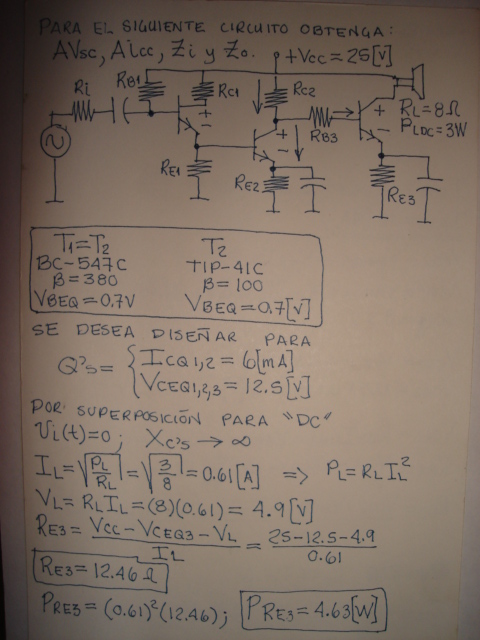 PARA EL SIGUIENTE CIRCUITO OBTENGA:
AVsc, Aicc, Zi y Zo.
+Vcc = 25[V]
Ri
RB1
RC1
RC2
RB3
RL = 8Ω
PLDC = 3W
RE1
RE2
RE3
+
-
+
-
+
-
T1 = T2
BC-547C
β = 380
VBEQ = 0.7V
T2
TIP-41C
β = 100
VBEQ = 0.7[V]
SE DESEA DISEÑAR PARA
Q's = { ICQ1,2 = 6[mA]
VCEQ1,2,3 = 12.5[V]
POR SUPERPOSICIÓN PARA "DC"
Vi(t) = 0; Xc's → ∞
IL = √PL/RL = √3/8 = 0.61[A] => PL = RL IL²
VL = RL IL = (8)(0.61) = 4.9[V]
RE3 = Vcc - VCEQ3 - VL / IL = 25 - 12.5 - 4.9 / 0.61
RE3 = 12.46Ω
PRE3 = (0.61)²(12.46); PRE3 = 4.63[W]